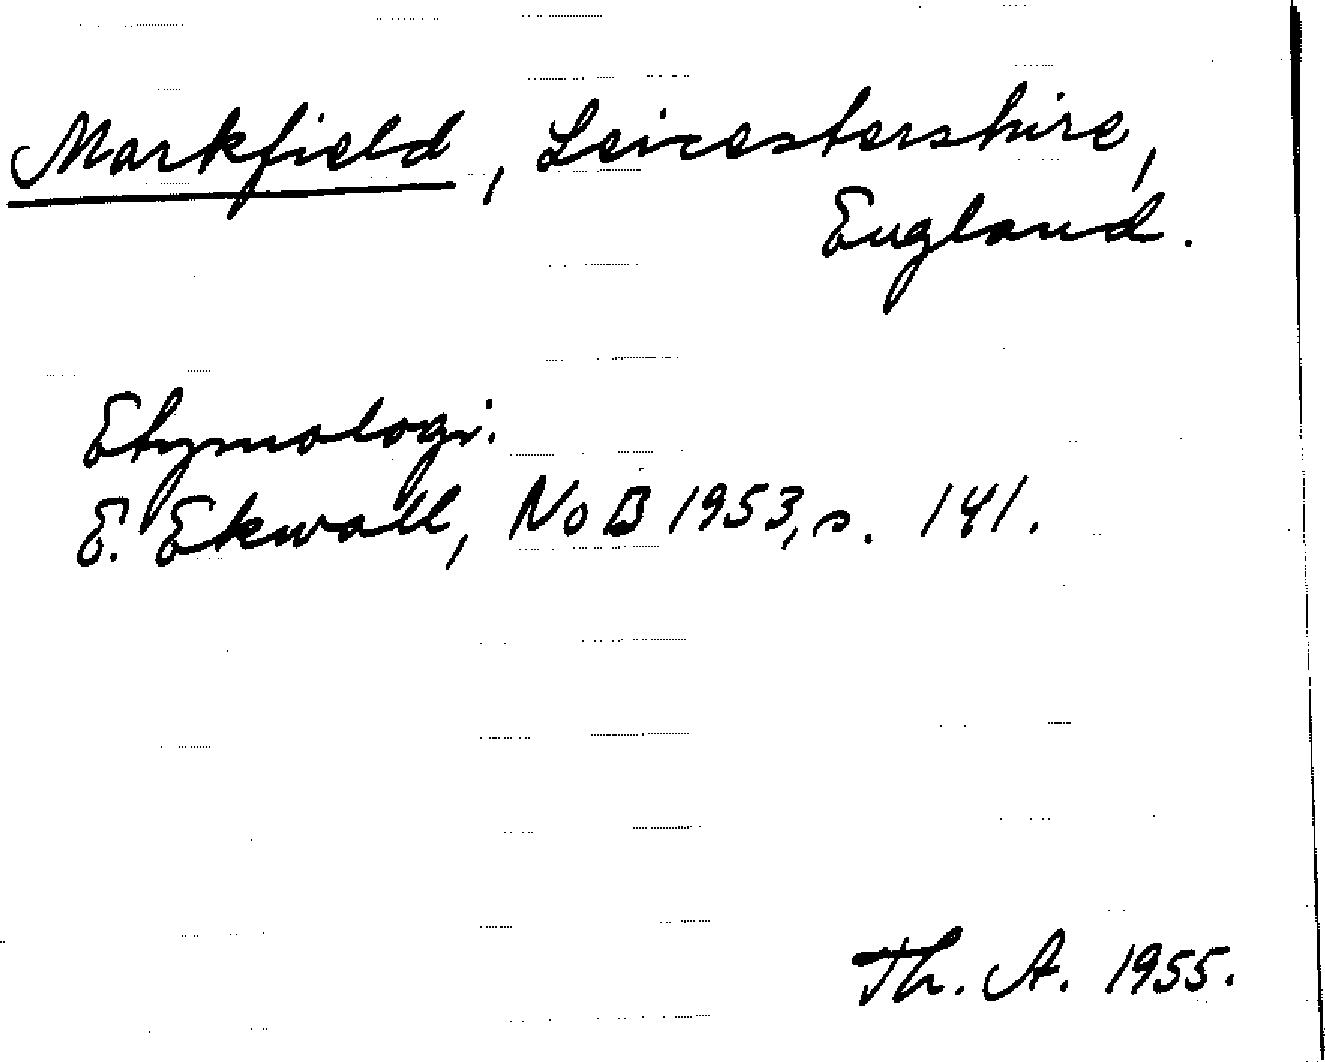 Markfield, Leicestershire,
England.
Etymologi.
E. Ekwall, NoB 1953, s. 141.
Th. A. 1955.